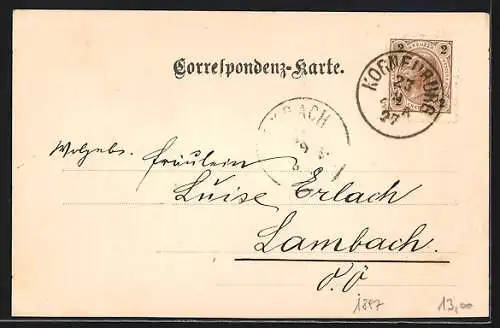 2 2
Correspondenz-Karte.
KORNEUBURG
23
97
2 2
BACH
9
Wolgebs. Fräulein
Luise Erlach
Lambach.
O.Ö
1897 13,00